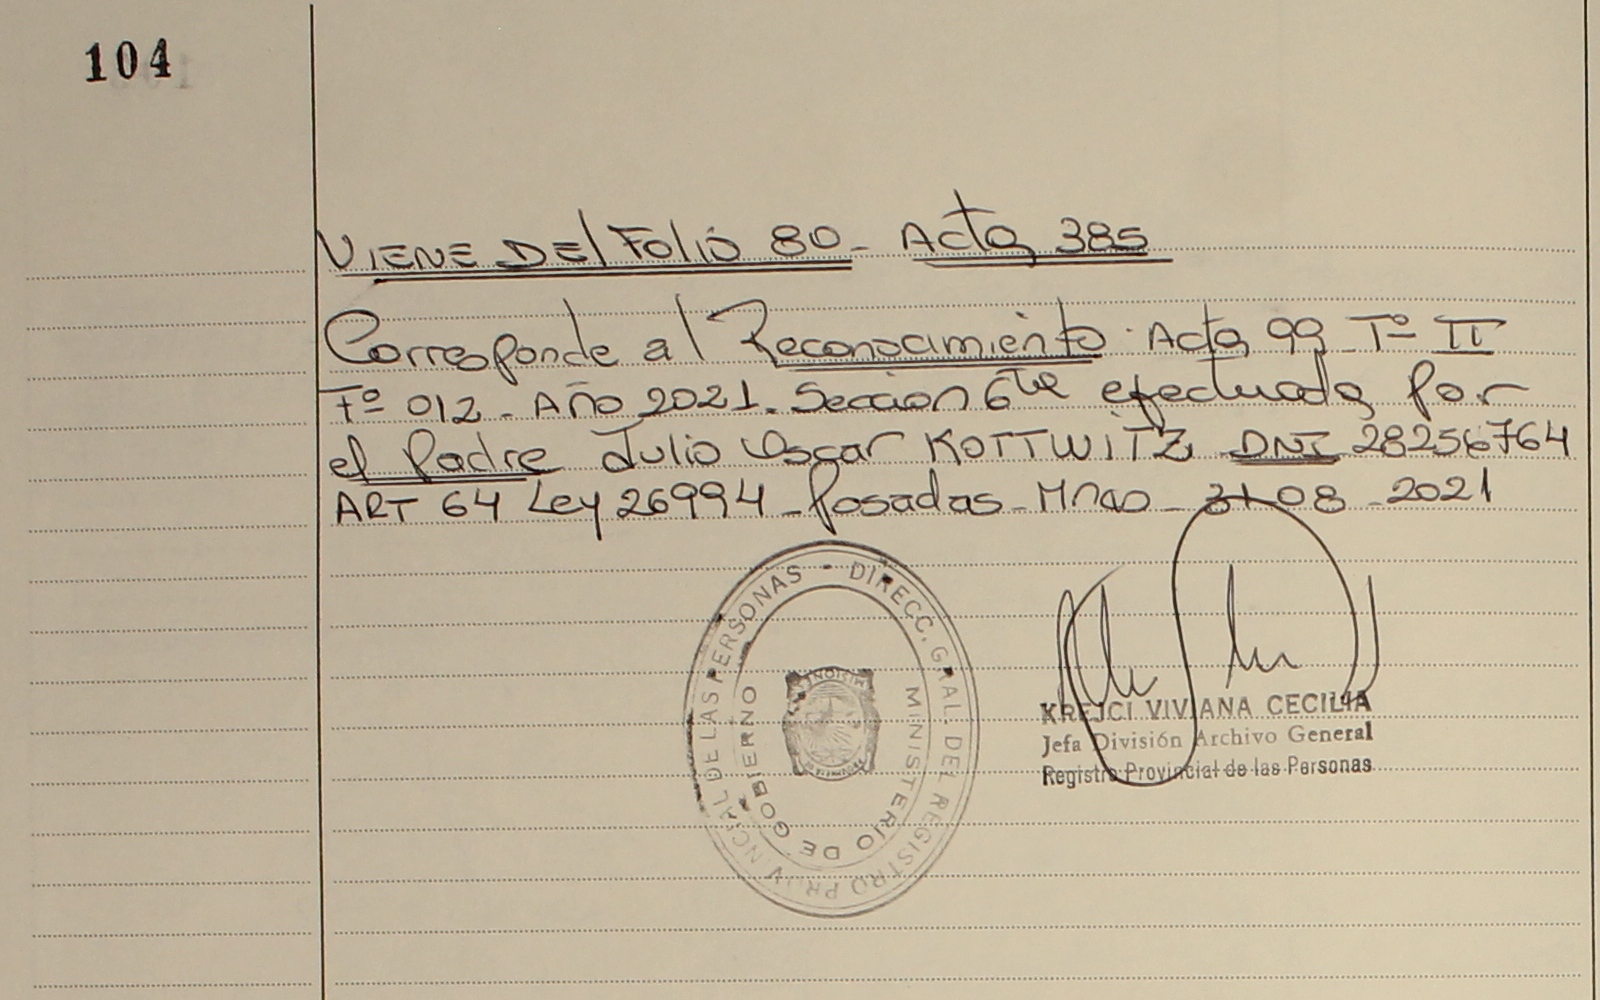 104
VIENE DEL FOLIO 80 - Acta 385
Corresponde al Reconocimiento. Acta 99 Tº II
Fº 012 - AÑO 2021. Seccion 6ta efectuada por
el Padre Julio Oscar KOTTWITZ DNI 28256764
ART 64 Ley 26994 - Posadas - Mnes - 31-08-2021
DIRECC. GRAL. DEL REGISTRO PROVINCIAL DE LAS PERSONAS -
MINISTERIO DE GOBIERNO
KREJCI VIVIANA CECILIA
Jefa División Archivo General
Registro Provincial de las Personas